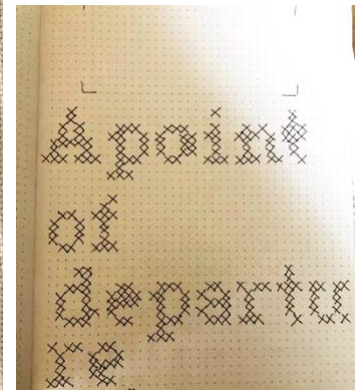 A point
of
departu
re.